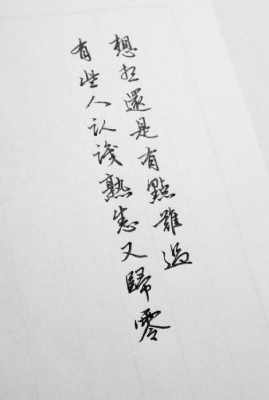 想起還是有點難過
有些人认識熟悉又歸零